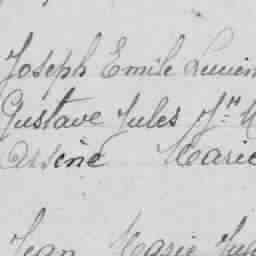 Joseph Emile Lucien
Gustave Jules Jn M
Arsène Marie
Jean Marie Jul